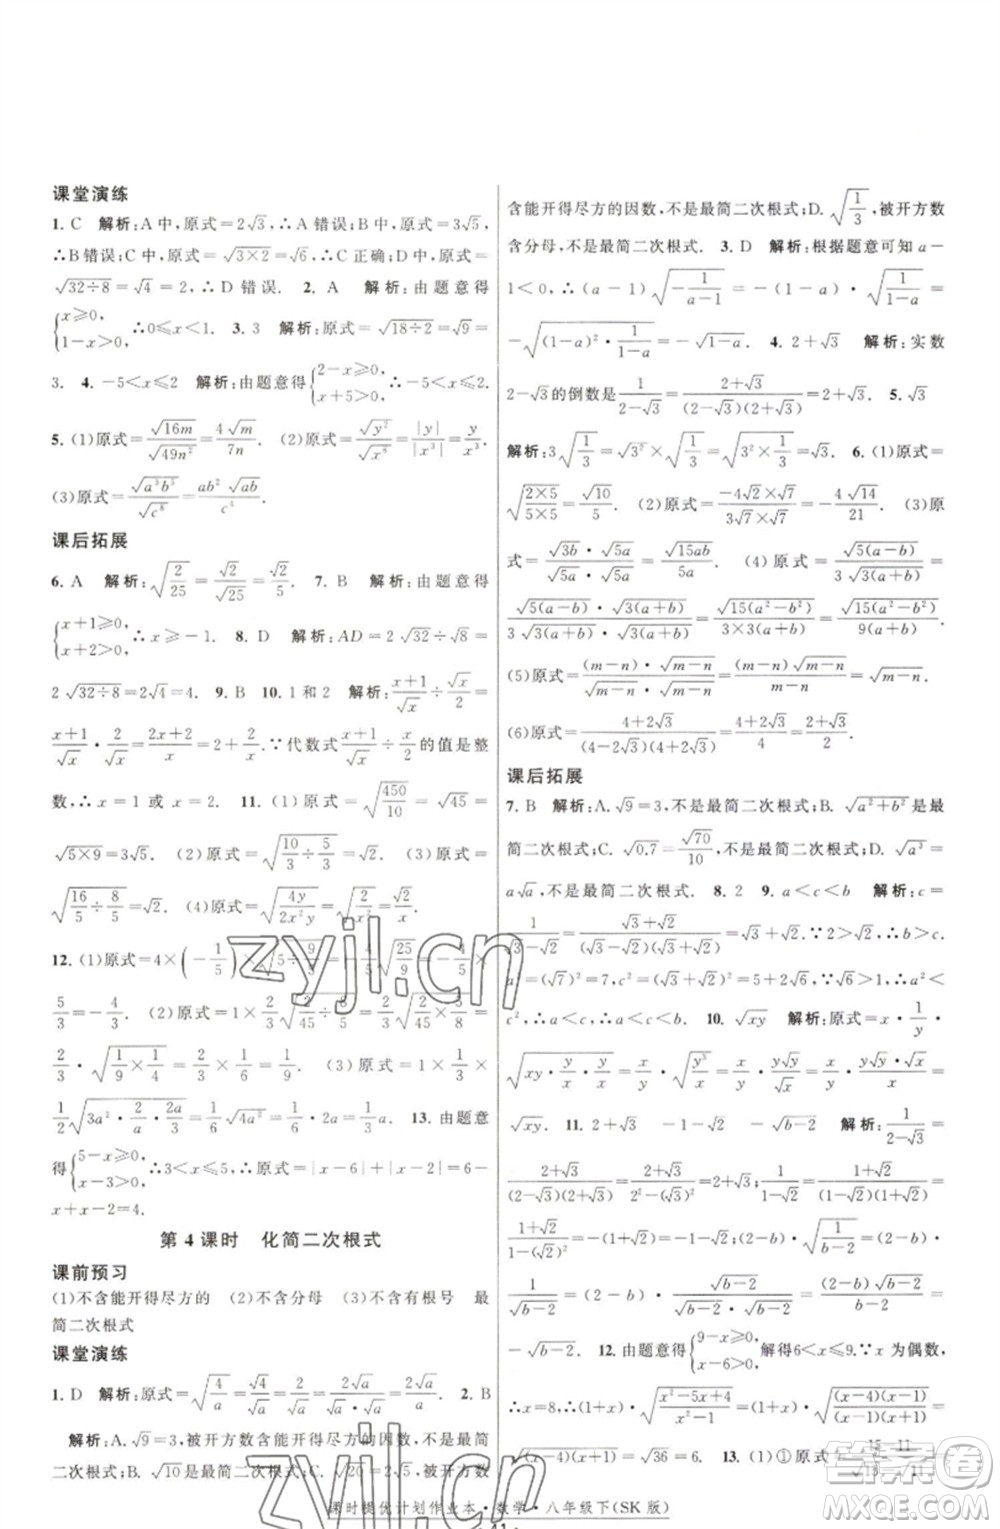 课堂演练
1. C 解析:A 中,原式=2√3,∴A 错误;B 中,原式=3√5,
∴B错误;C中,原式=√(3×2)=√6,∴C 正确;D 中,原式=
√(32÷8)=√4=2,∴D 错误. 2. A 解析:由题意得
{x≥0, 1-x>0, ∴0≤x<1. 3. 3 解析:原式=√(18÷2)=√9=
3. 4. -5<x≤2 解析:由题意得{2-x≥0, x+5>0, ∴-5<x≤2.
5. (1)原式=√(16m)/√(49n²)=4√m/7n. (2)原式=√(y²)/√(x⁶)=|y|/|x³|=y/x³.
(3)原式=√(a³b⁵)/√(c⁸)=ab²√(ab)/c⁴.
课后拓展
6. A 解析:√(2/25)=√2/√25=√2/5. 7. B 解析:由题意得
{x+1≥0, x+2>0, ∴x≥-1. 8. D 解析:AD=2√32÷√8=
2√(32÷8)=2√4=4. 9. B 10. 1 和 2 解析:(x+1)/√x÷√x/2=
(x+1)/√x·2/√x=(2x+2)/x=2+2/x.∵代数式(x+1)/√x÷√x/2的值是整
数,∴x=1 或 x=2. 11. (1)原式=√(450/10)=√45=
√(5×9)=3√5. (2)原式=√(10/3÷5/3)=√2. (3)原式=
√(16/5÷8/5)=√2. (4)原式=√(4y/2x²y)=
12. (1)原式=4×(-1/5)
5/3=-4/3. (2)原式=1×2/3×
2/3√(1/9×1/4)=2/3×1/3×1/2=1/9. (3)原式=1×
1/2√(3a²·2/a·2a/3)=1/2√(4a²)=1/2·2a=a. 13. 由题意
得{5-x≥0, x-3>0, ∴3<x≤5,∴原式=|x-6|+|x-2|=6-
x+x-2=4.
第 4 课时 化简二次根式
课前预习
(1)不含能开得尽方的 (2)不含分母 (3)不含有根号 最
简二次根式
课堂演练
1. D 解析:原式=√(4/a)=√4/√a=2/√a=2√a/a. 2. B
解析:A.√9=3,被开方数含能开得尽方的因数,不是最简
二次根式;B.√10是最简二次根式;C.√20=2√5,被开方数
含能开得尽方的因数,不是最简二次根式;D.√(1/3),被开方数
含分母,不是最简二次根式. 3. D 解析:根据题意可知 a-
1<0,∴(a-1)√(-1/(a-1))=-(1-a)√(1/(1-a))=
-√((1-a)²·1/(1-a))=-√(1-a). 4. 2+√3 解析:实数
2-√3的倒数是1/(2-√3)=(2+√3)/((2-√3)(2+√3))=2+√3. 5. √3
解析:3√(1/3)=√(3²)×√(1/3)=√(3²×1/3)=√3. 6. (1)原式=
√((2×5)/(5×5))=√10/5. (2)原式=(-4√2×√7)/(3√7×√7)=-4√14/21. (3)原
式=(√(3b)·√(5a))/(√(5a)·√(5a))=√(15ab)/5a. (4)原式=√(5(a-b))/(3√(3(a+b)))=
(√(5(a-b))·√(3(a+b)))/(3√(3(a+b))·√(3(a+b)))=√(15(a²-b²))/(3×3(a+b))=√(15(a²-b²))/(9(a+b)).
(5)原式=((m-n)·√(m-n))/(√(m-n)·√(m-n))=((m-n)√(m-n))/(m-n)=√(m-n).
(6)原式=(4+2√3)/((4-2√3)(4+2√3))=(4+2√3)/4=(2+√3)/2.
课后拓展
7. B 解析:A.√9=3,不是最简二次根式;B.√(a²+b²)是最
简二次根式;C.√0.7=√70/10,不是最简二次根式;D.√(a³)=
a√a,不是最简二次根式. 8. 2 9. a<c<b 解析:c=
1/(√3-√2)=(√3+√2)/((√3-√2)(√3+√2))=√3+√2.∵2>√2,∴b>c.
∵a²=(√7)²=7,c²=(√3+√2)²=5+2√6,∵√6>1,∴a²<
c²,∴a<c,∴a<c<b. 10. √(xy) 解析:原式=x·1/y·
√(xy)
√(xy). 11. 2+√3 -1-√2 -√(b-2) 解析:1/(2-√3)=
(2+√3)/((2-√3)(2+√3))=(2+√3)/(2²-(√3)²)=2+√3.
12. 由题意得{9-x≥0, x-6>0, 解得6<x≤9.∵x为偶数,
∴x=8,∴(1+x)√((x²-5x+4)/(x²-1))=(1+x)√((x-4)(x-1)/((x+1)(x-1)))=
√((x-4)(x+1))=√36=6. 13. (1)①原式
课时提优计划作业本·数学·八年级下(SK 版)
zyjl.cn
zyjl.cn
答案圈
MXQE.COM